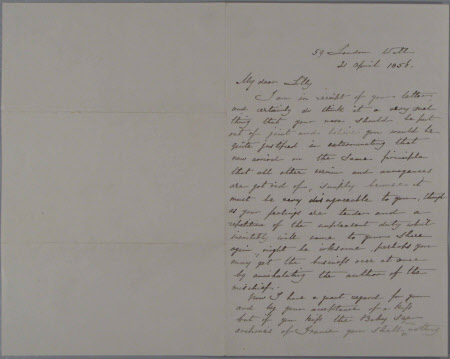 59 London Wall
21 April 1856.
My dear Lilly
I am in receipt of your letter
and certainly do think it a very sad
thing that your nose should be put
out of joint and believe you would be
quite justified in exterminating that
new arrival on the same principle
that all other vermin and annoyances
are got rid of, simply because it
must be very disagreeable to you, though
as your feelings are tender and a
repetition of the unpleasant duty which
inevitably will come to your share
again might be irksome perhaps you
may get the business over at once
by annihilating the author of the
mischief.
Now I have a great regard for you
and by your acceptance of a kiss
but if you kiss the Baby
of France you shall nothing